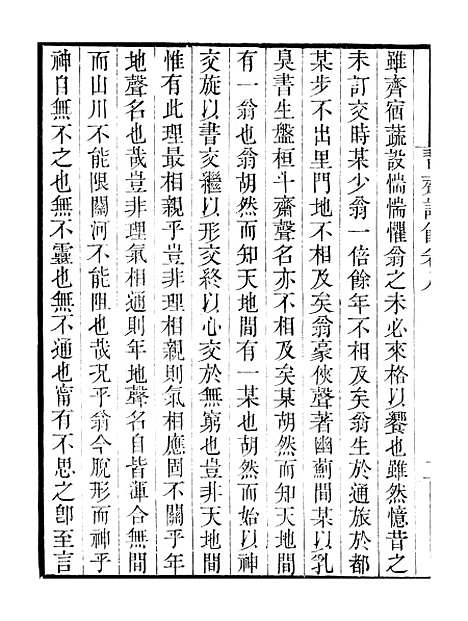 雖齊宿蔬設惴惴懼翁之未必來格以饗也雖然憶昔之
未訂交時某少翁一倍餘年不相及矣翁生於通旅於都
某步不出里門地不相及矣翁豪俠聲著幽薊間某以乳
臭書生盤桓斗齋聲名亦不相及矣某胡然而知天地間
有一翁也翁胡然而知天地間有一某也胡然而始以神
交旋以書交繼以形交終以心交於無窮也豈非天地間
惟有此理最相親乎豈非理相親則氣相應固不關乎年
地聲名也哉豈非理氣相通則年地聲名自皆渾合無間
而山川不能限關河不能阻也哉況乎翁今脫形而神乎
神自無不之也無不靈也無不通也甯有不思之卽至言